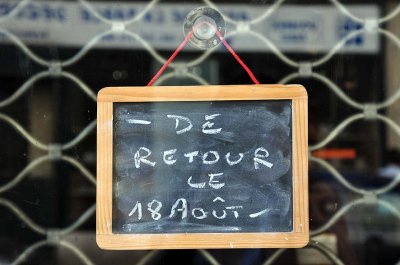 - DE
RETOUR
LE
18 AOÛT -